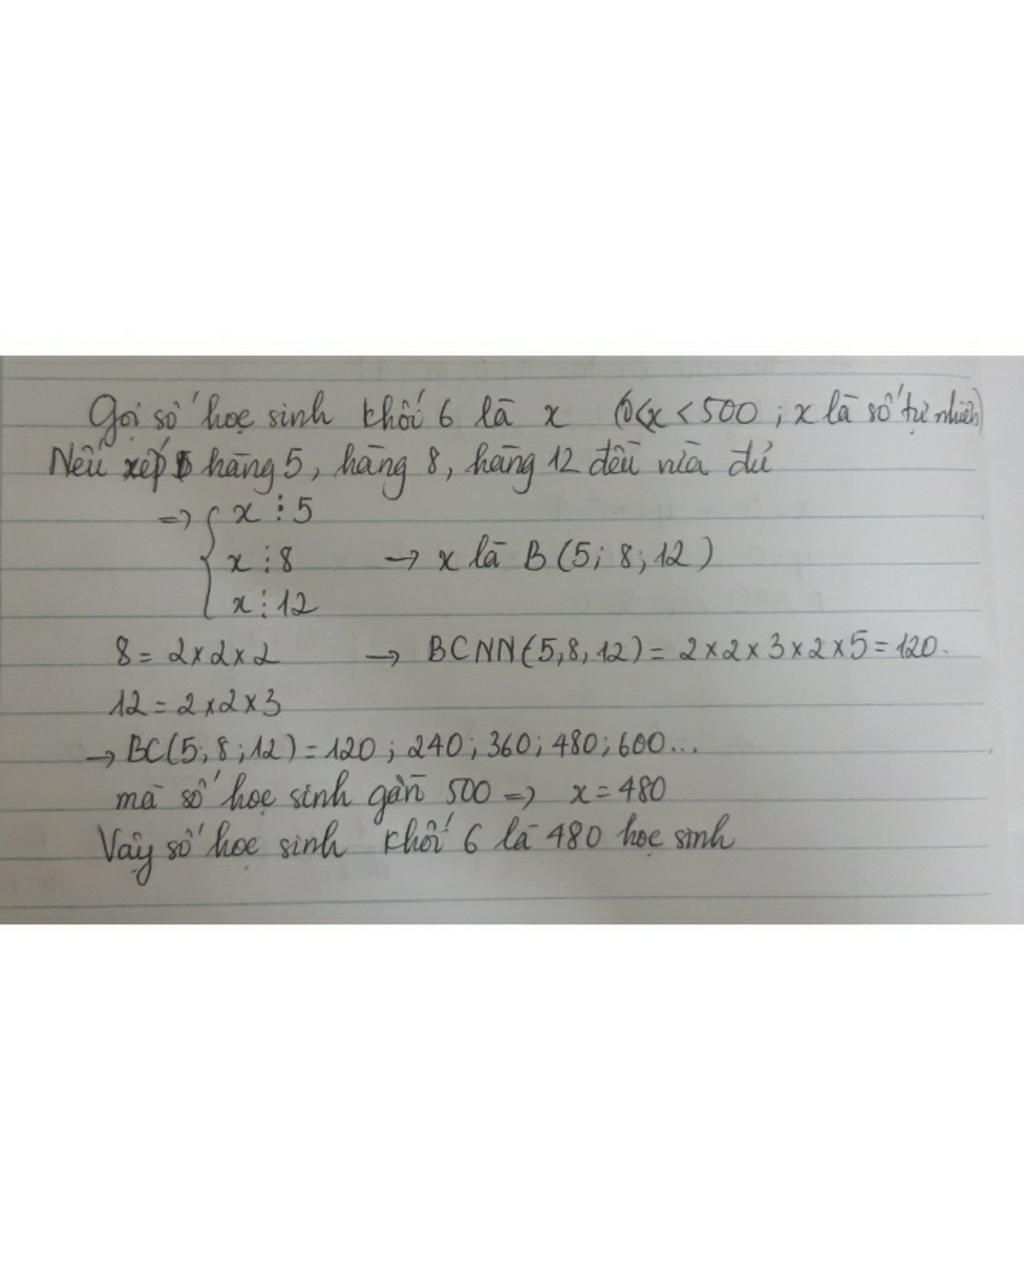 Gọi số học sinh khối 6 là x (0<x < 500 ; x là số tự nhiên)
Nếu xếp hàng 5, hàng 8, hàng 12 đều vừa đủ
=> { x ⋮ 5
x ⋮ 8 → x là B (5; 8; 12)
x ⋮ 12
8 = 2×2×2 → BCNN(5,8,12) = 2×2×3×2×5=120.
12 = 2×2×3
→ BC(5; 8; 12) = 120 ; 240; 360; 480; 600...
mà số học sinh gần 500 => x = 480
Vậy số học sinh khối 6 là 480 học sinh